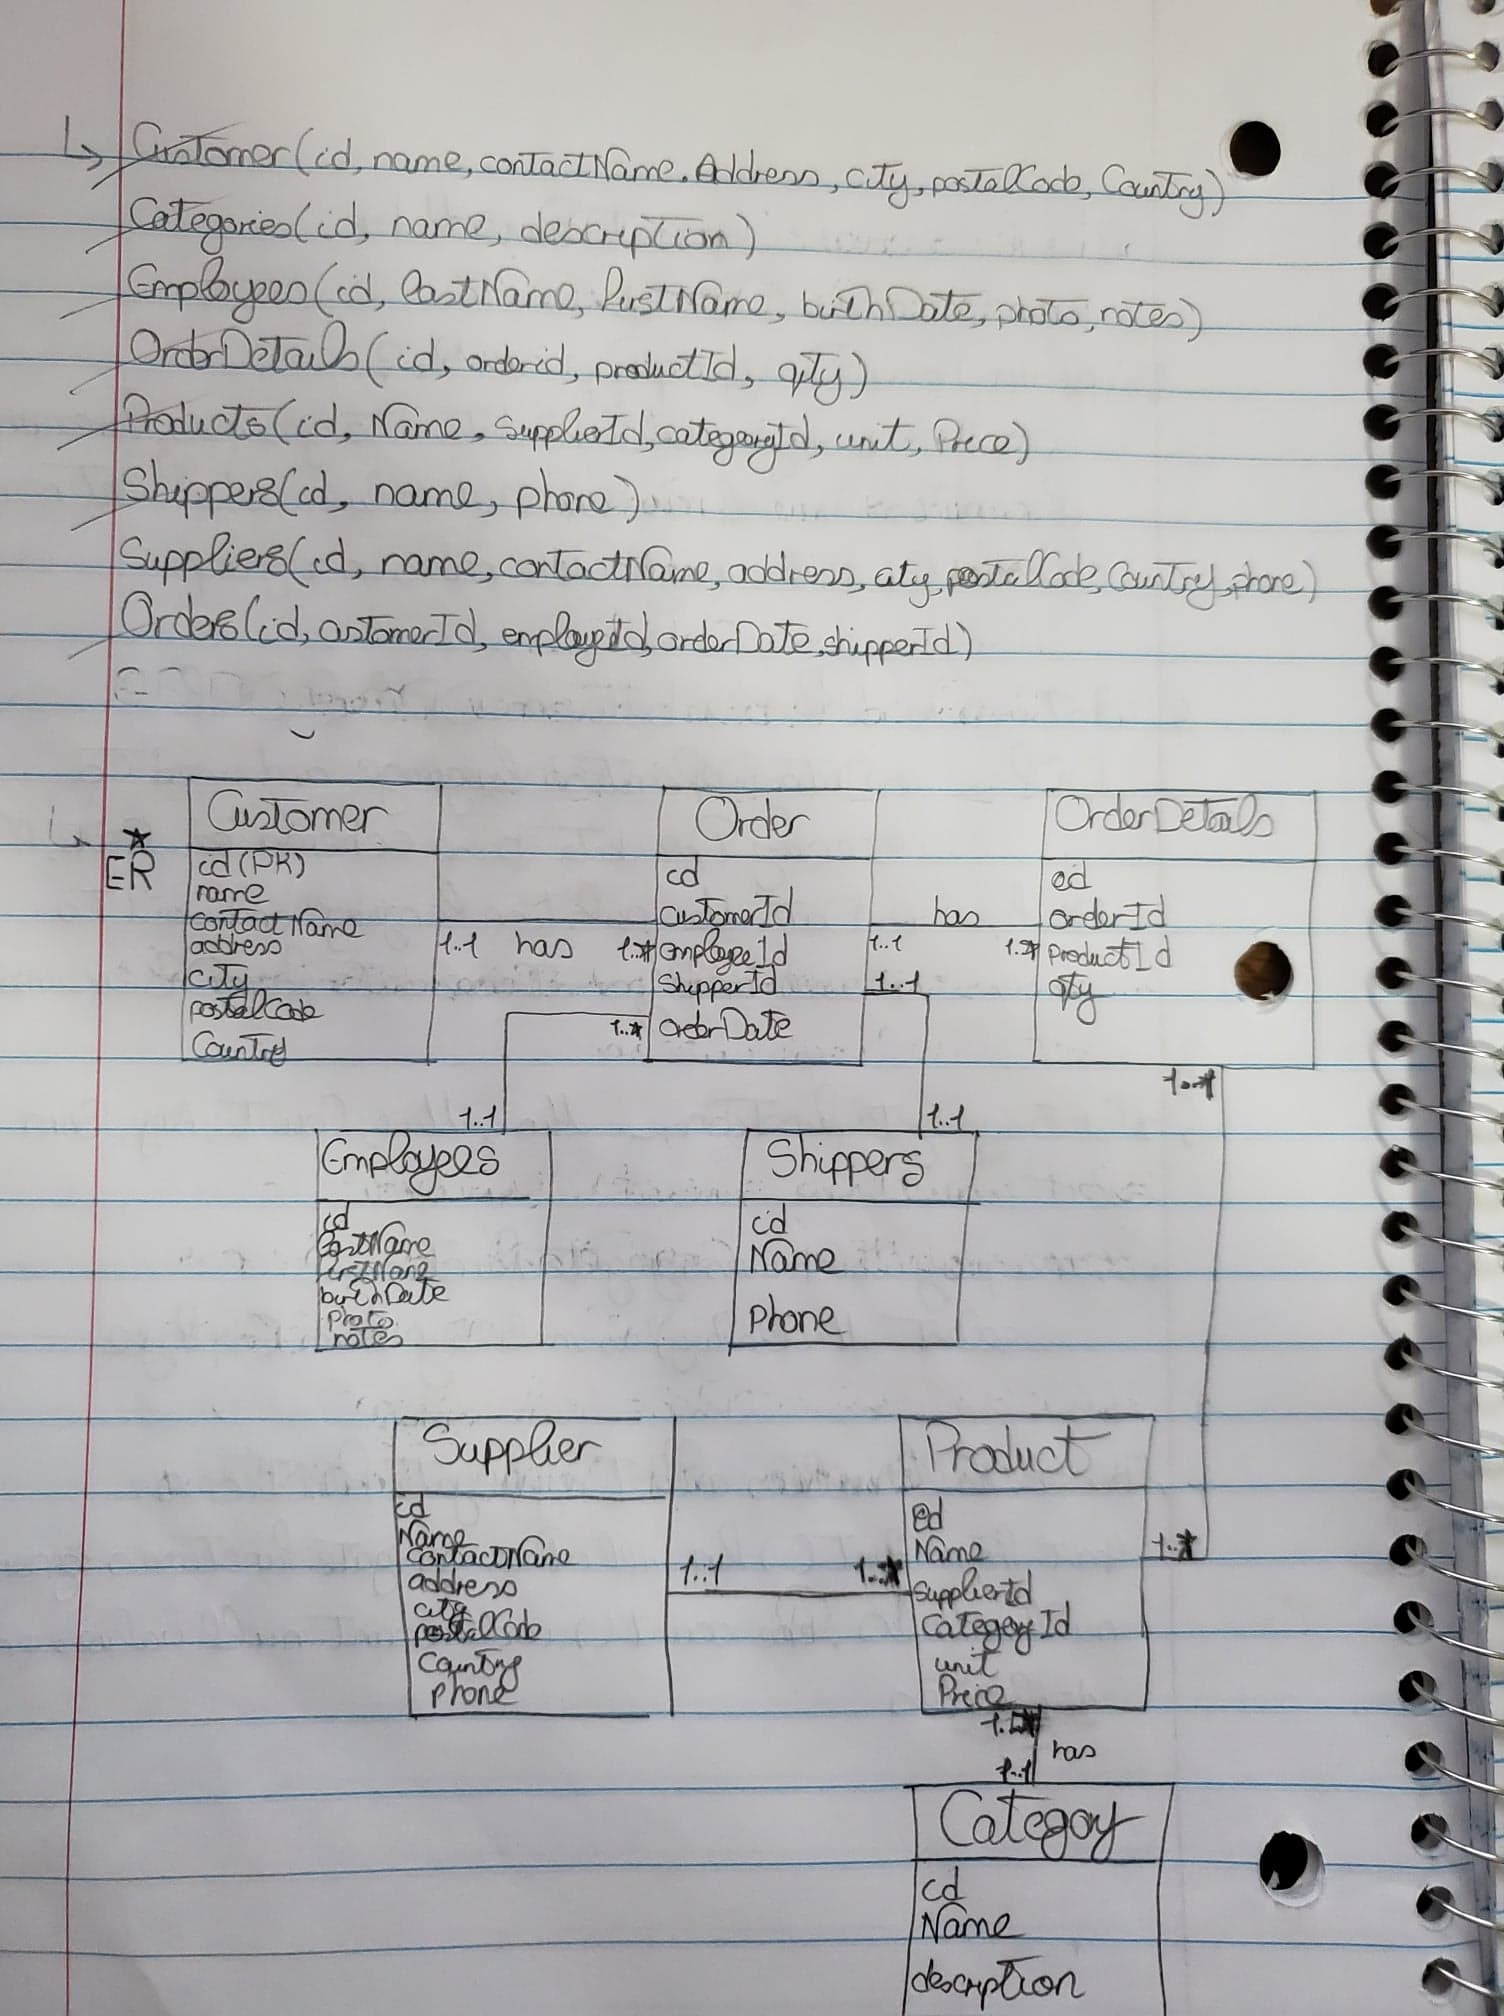 Customer(id, name, contactName. Address, city, postalCode, Country)
Categories(id, name, description)
Employees(id, lastName, FirstName, birthDate, photo, notes)
OrderDetails(id, orderid, productId, qty)
Products(id, Name, SupplierId, categoryId, unit, Price)
Shippers(id, name, phone)
Suppliers(id, name, contactName, address, city, postalCode, Country, phone)
Orders(id, customerId, employeeId, orderDate, shipperId)
ER
Customer
id (PK)
name
contactName
address
city
postalCode
Country
1..1 has 1..*
Order
id
customerId
employeeId
ShipperId
OrderDate
has
1..1 1..*
1..1
1..*
OrderDetails
id
orderId
productId
qty
1..*
1..1
1..1
Employees
id
LastName
FirstName
birthDate
Photo
notes
Shippers
id
Name
Phone
Supplier
id
Name
contactName
address
city
postalCode
Country
Phone
1..1 1..*
Product
id
Name
supplierId
CategoryId
unit
Price
1..*
1..*
has
1..1
Categoy
id
Name
description